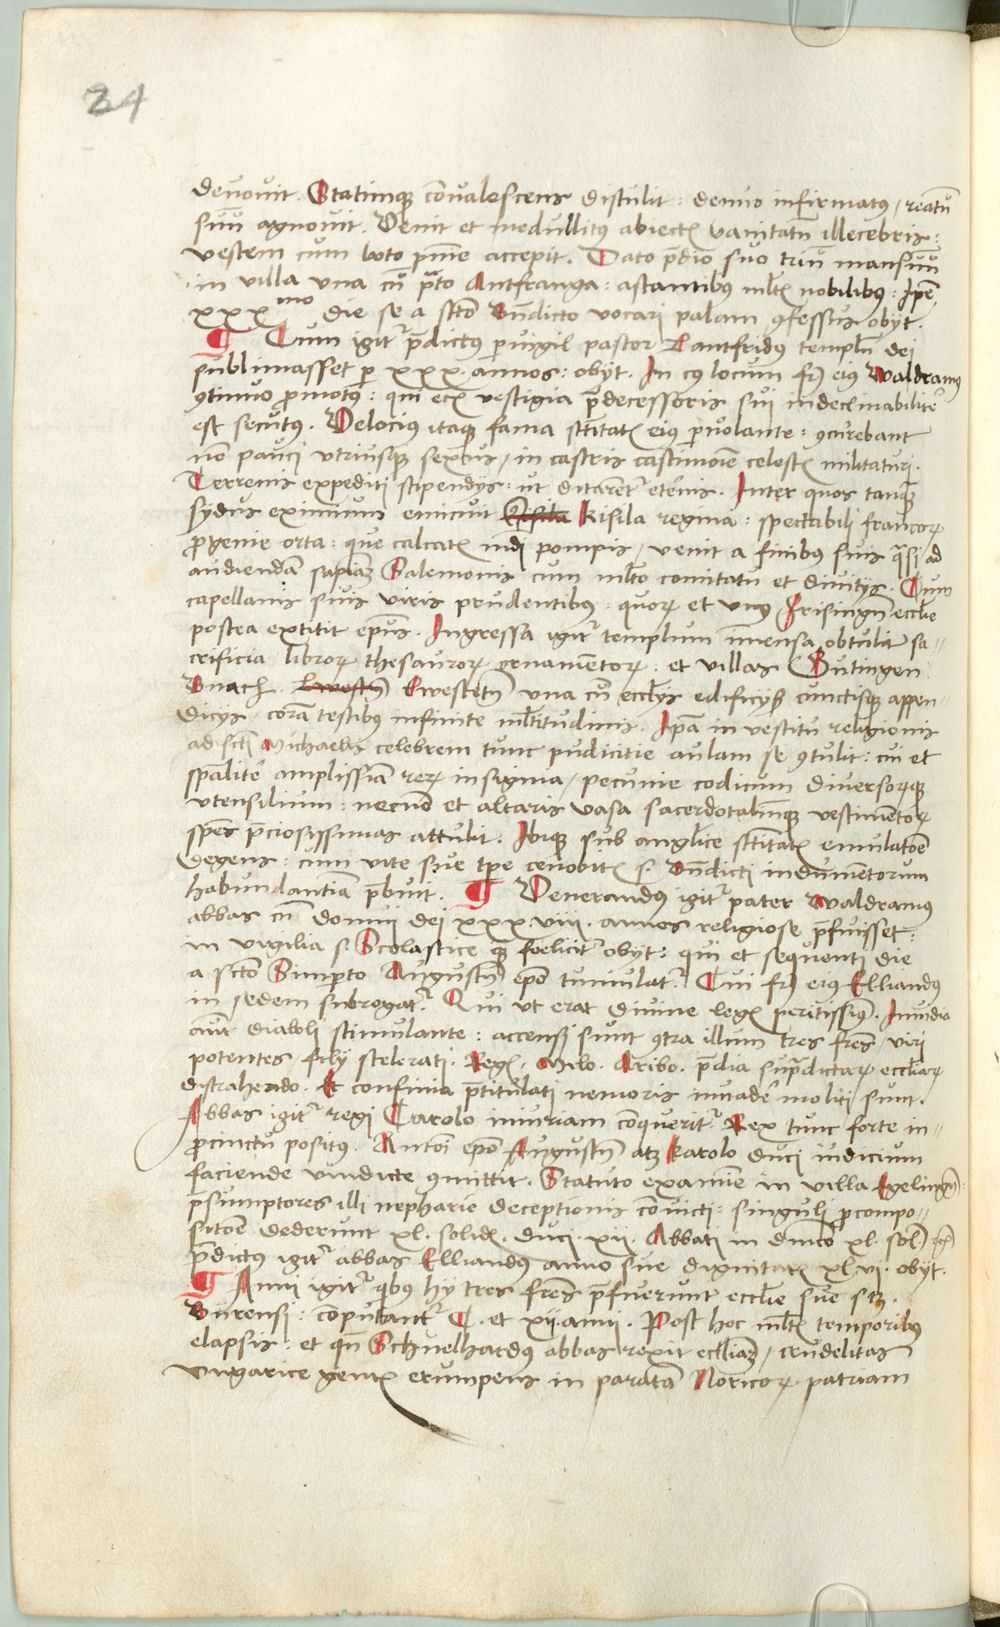 24
devovit. Statimq̃ cõvalescens distulit: denuo infirmatus, reatũ
suũ agnovit. Venit et medullitus abiectꝭ vanitatũ illecebris:
vestem cum voto pnĩe accepit. Dato p̃dio suo triũ mansuũ
in villa una cũ p̃to Antfranga: astantibus ml̃tꝭ nobilibus: Ipẽ,
xxx mo die se a sct̃o Bñdicto vocari palam ꝯfessus obyt.
¶ Cum igit᷑ p̃dictus ꝑvigil pastor Lantfridus templũ dei
publimasset ꝑ xxx annos: obyt. In cꝯ locum fr̃ eius Waldramꝯ
ꝯtinuo ꝓmotus: qui ecꝭ vestigia p̃decessoris sui indeclinabilitẽ
est secutus. Velocius itaq̃ fama sc̃titatꝭ eius ꝑvolante: ꝯcurrebant
nõ pauci utriusq̃ sexus, in castris castimoĩe celestꝭ militaturi.
Terrenis expediti stipendys: ut ditarent᷑ et̃nis. Inter quos tanq̃
sydus eximium emicuit Kisila regina: spectabili francoꝝ
ꝓgenie orta: que calcatꝭ mũdi pompis, venit a finibus suis q̃si ad
audiendã sapiaꝫ Salemonis cum ml̃to comitatu et divitys. Cum
capellanis suis viris prudentibus: quoꝝ et unus Frisingñ eccl̃ie
postea extitit ep̃us. Ingressa igit᷑ templum im̃ensa obtulit sa-
crificia, libroꝝ thesauroꝝ ornamentoꝝ: et villas Sutingen
Bnach. Ewestetñ una cũ eccl̃ys edificyß cunctisq̃ appen-
dicys, corã testibus infinite ml̃titudinis. Ipã in vestitu religionis
ad scti Michaelis celebrem tunc pudicitie aulam se ꝯtulit: cui et
sp̃alitẽ amplissĩa reꝝ insignia, pecunie codicum diversoꝝq̃
utensilium: necnõ et altaris vasa sacerdotaliumq̃ vestimentoꝝ
sp̃es p̃ciosissimas attulit. Ibiq̃ sub anglice sc̃titatꝭ emulatõe
degens: cum vite sue tp̃e cenobitꝭ s. Bñdicti indumentorum
habundantiã p̃buit. ¶ Venerandus igit᷑ pater Waldramus
abbas cũ domui dei xxxviii. annos religiose p̃fuisset:
in vigilia s. Scolastice q̃ foelicit᷑ obyt: qui et sequenti die
a scto Simp̃to Augustñ ep̃o tumulat᷑. Cui fr̃ eius Elliandus
in sedem subrogat᷑. Qui ut erat divine legꝭ peritissimꝯ. Invidia
aut̃ diaboli stimulante: accensi sunt ꝯtra illum tres fr̃es, viri
potentes, fily scelerati. Regꝭ. Milo. Aribo. p̃dia sup̃dictaꝝ eccl̃iaꝝ
distrahendo. Et confinia p̃titulati nemoris invadẽ moliti sunt.
Abbas igit᷑ regi Carolo iniuriam cõquerit᷑. Rex tunc forte in-
ꝓcinctu positus. Antoi ep̃o Augustñ atꝫ Karolo duci iudicium
faciende vindicte ꝯmittit. Statuto examine in villa Egelingñ:
p̃sumptores illi nepharie deceptionis cõvicti: singuli ꝓcompo-
sitõe dederunt xl. solidꝭ. duci. xii. Abbati in dñico xl. sol̃
p̃dictus igit᷑ abbas Elliandus anno sue dignitatꝭ xl.vi. obyt.
¶ Anni igit᷑ qb̃us hy tres fr̃es p̃fuerunt eccl̃ie sue sꝫ.
Bũrensi: cõputant᷑ C. et xii anni. Post hoc ml̃tꝭ temporibus
elapsis: et qñ Schnelhardus abbas rexit eccl̃iaꝫ, crudelitas
Ungarice gentꝭ erumpens in paratã Noricoꝝ patriam